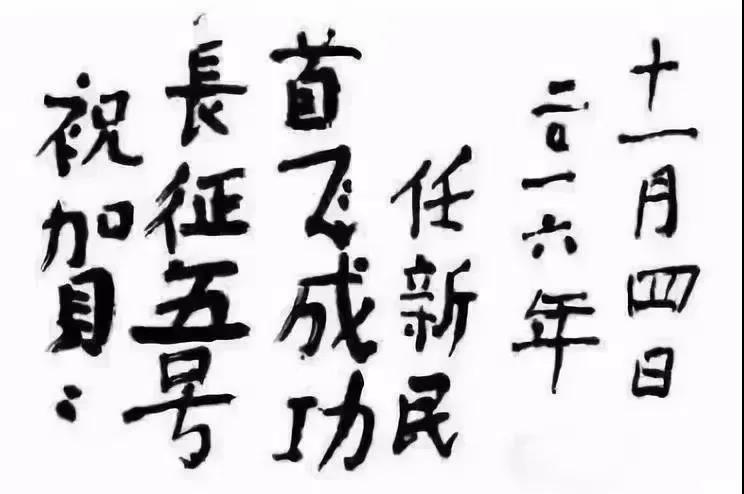 祝贺：
長征五号
首飞成功
任新民
二〇一六年
十一月四日